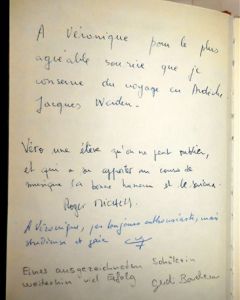 A Véronique pour le plus
agréable sourire que je
conserve du voyage en Ardèche
Jacques
Véro une élève qu'on ne peut oublier,
et qui a su apporter au cours de
musique la bonne humeur et le sourire.
Roger
A Véronique, toujours enthousiaste, mais
studieuse et gaie
Einer ausgezeichneten Schülerin
weiterhin viel Erfolg